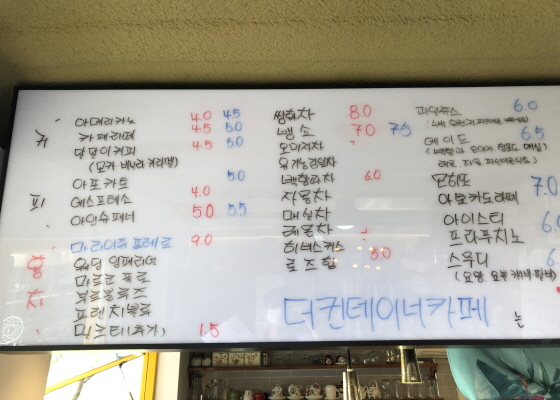 아메리카노 4.0 4.5
카페라떼 4.5 5.0
달달이커피 4.5 5.0
(모카 바닐라 카라멜)
아포카토 5.0
에스프레소 4.0
아인슈페너 5.0 5.5
커
피
마리아쥬 프레르 9.0
웨딩 임페리얼
마르코 폴로
프렌치블루
밀크티(추가) 1.5
홍
차
쌍화차 8.0
냉소 7.0 7.5
오미자차
유기농감잎차
백향과차 6.0
자몽차
매실차
레몬차
히비스커스
로즈힙 5.0
과일쥬스 6.0
에이드 6.5
모히또
아보카도라떼 7.0
아이스티
프라푸치노
스무디
더컨테이너카페
는